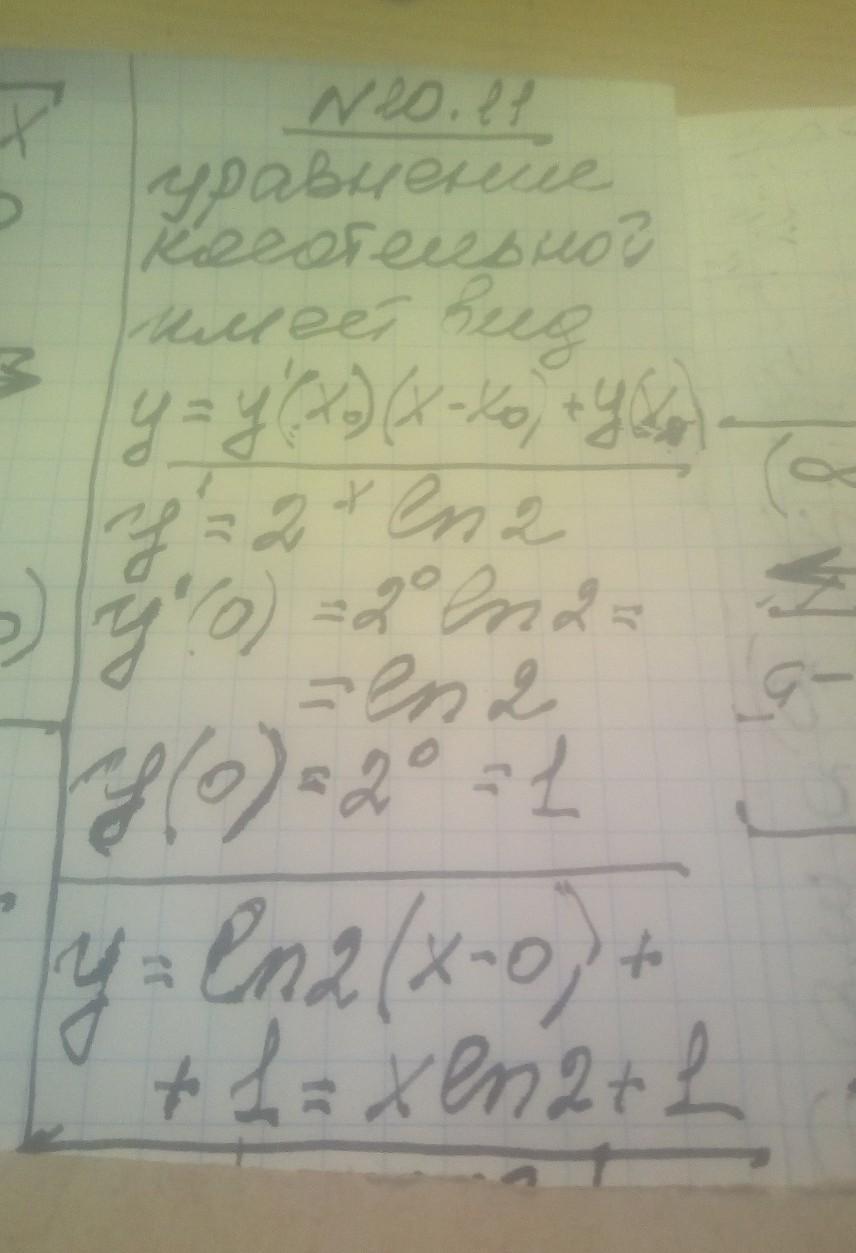 N10.11
уравнение
касательной
имеет вид
y = y'(x₀)(x-x₀) + y(x₀)
y' = 2ˣ ln 2
y'(0) = 2⁰ ln 2 =
= ln 2
y(0) = 2⁰ = 1
y = ln2(x-0) +
+ 1 = x ln2 + 1